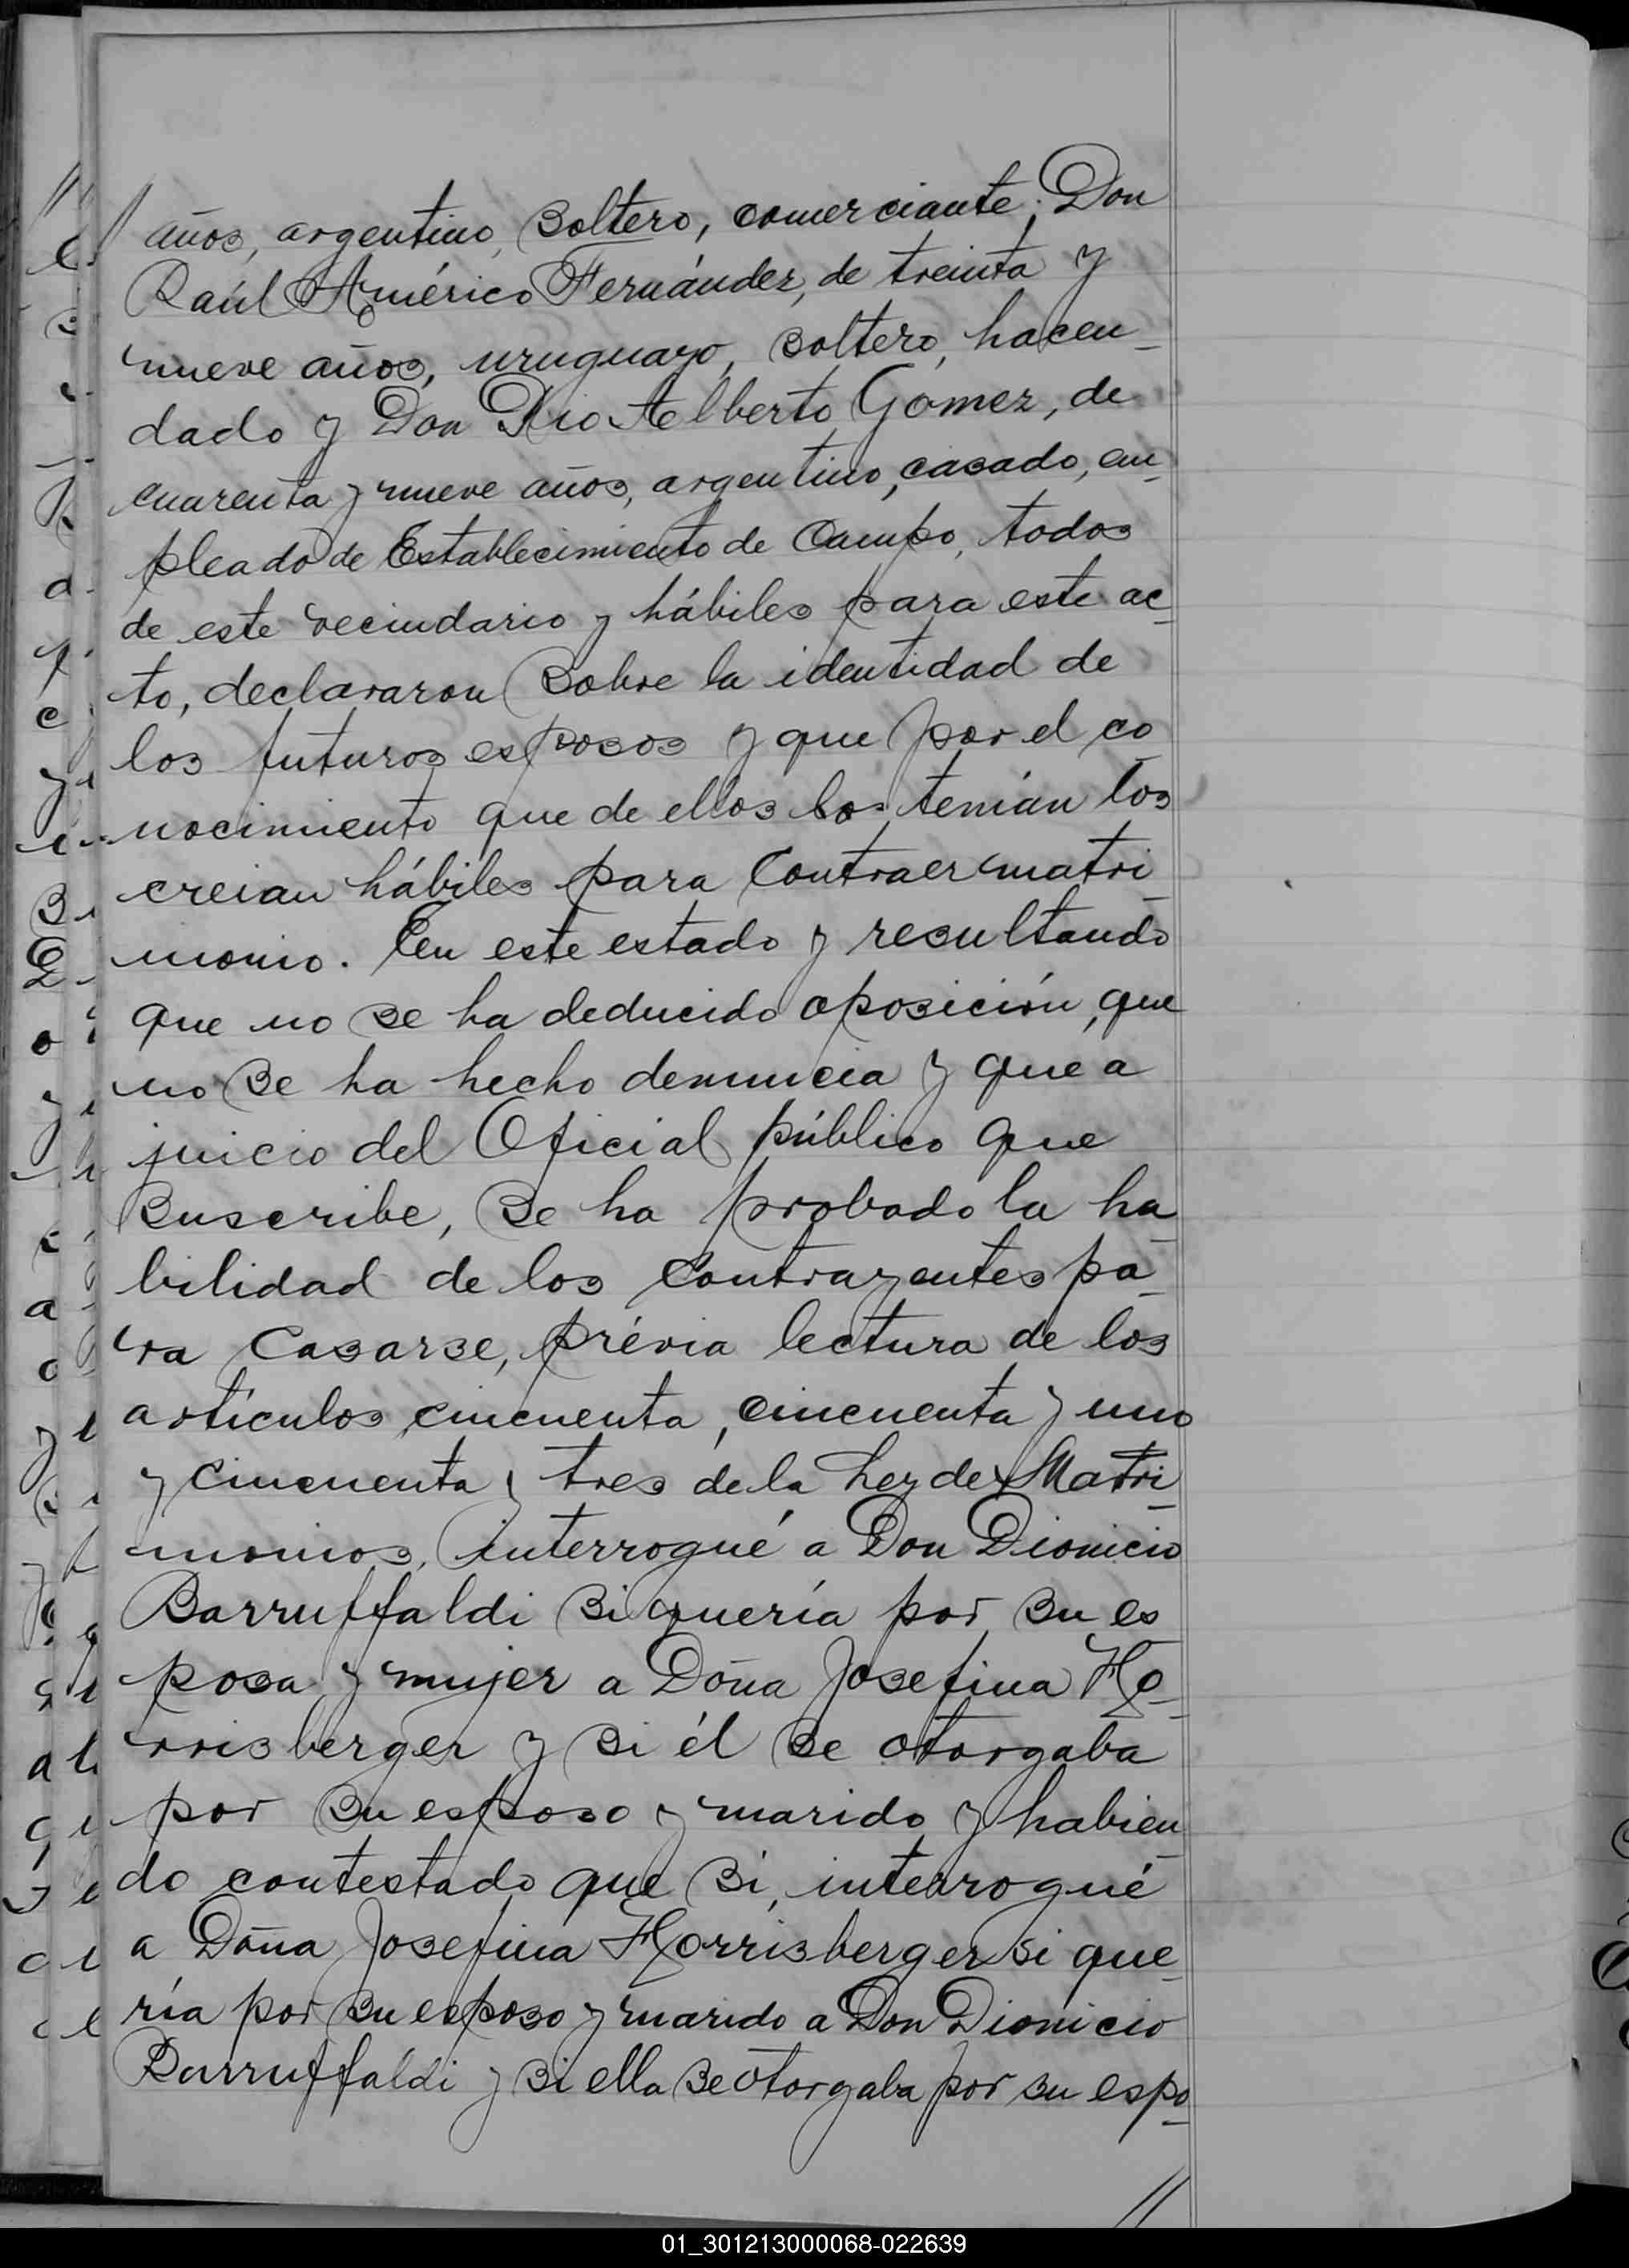 // años, argentino, soltero, comerciante; Don
Raúl Américo Fernández, de treinta y
nueve años, uruguayo, soltero, hacen-
dado y Don Pio Alberto Gómez, de
cuarenta y nueve años, argentino, casado, em-
pleado de Establecimiento de Campo, todos
de este vecindario y hábiles para este ac-
to, declararon sobre la identidad de
los futuros esposos y que por el co-
nocimiento que de ellos tenían los
creian hábiles para contraer matri-
monio. En este estado y resultando
que no se ha deducido oposición, que
no se ha hecho denuncia y que a
juicio del Oficial público que
suscribe, se ha probado la ha-
bilidad de los contrayentes pa-
ra casarse, prévia lectura de los
artículos cincuenta, cincuenta y uno
y cincuenta y tres de la Ley de Matri-
monios, interrogué a Don Dionicio
Barruffaldi si quería por su es-
posa y mujer a Doña Josefina Ho-
rrisberger y si él se otorgaba
por su esposo y marido y habien-
do contestado que si, interrogué
a Doña Josefina Horrisberger si que-
ría por su esposo y marido a Don Dionicio
Barruffaldi y si ella se otorgaba por su espo-
//
01_301213000068-022639